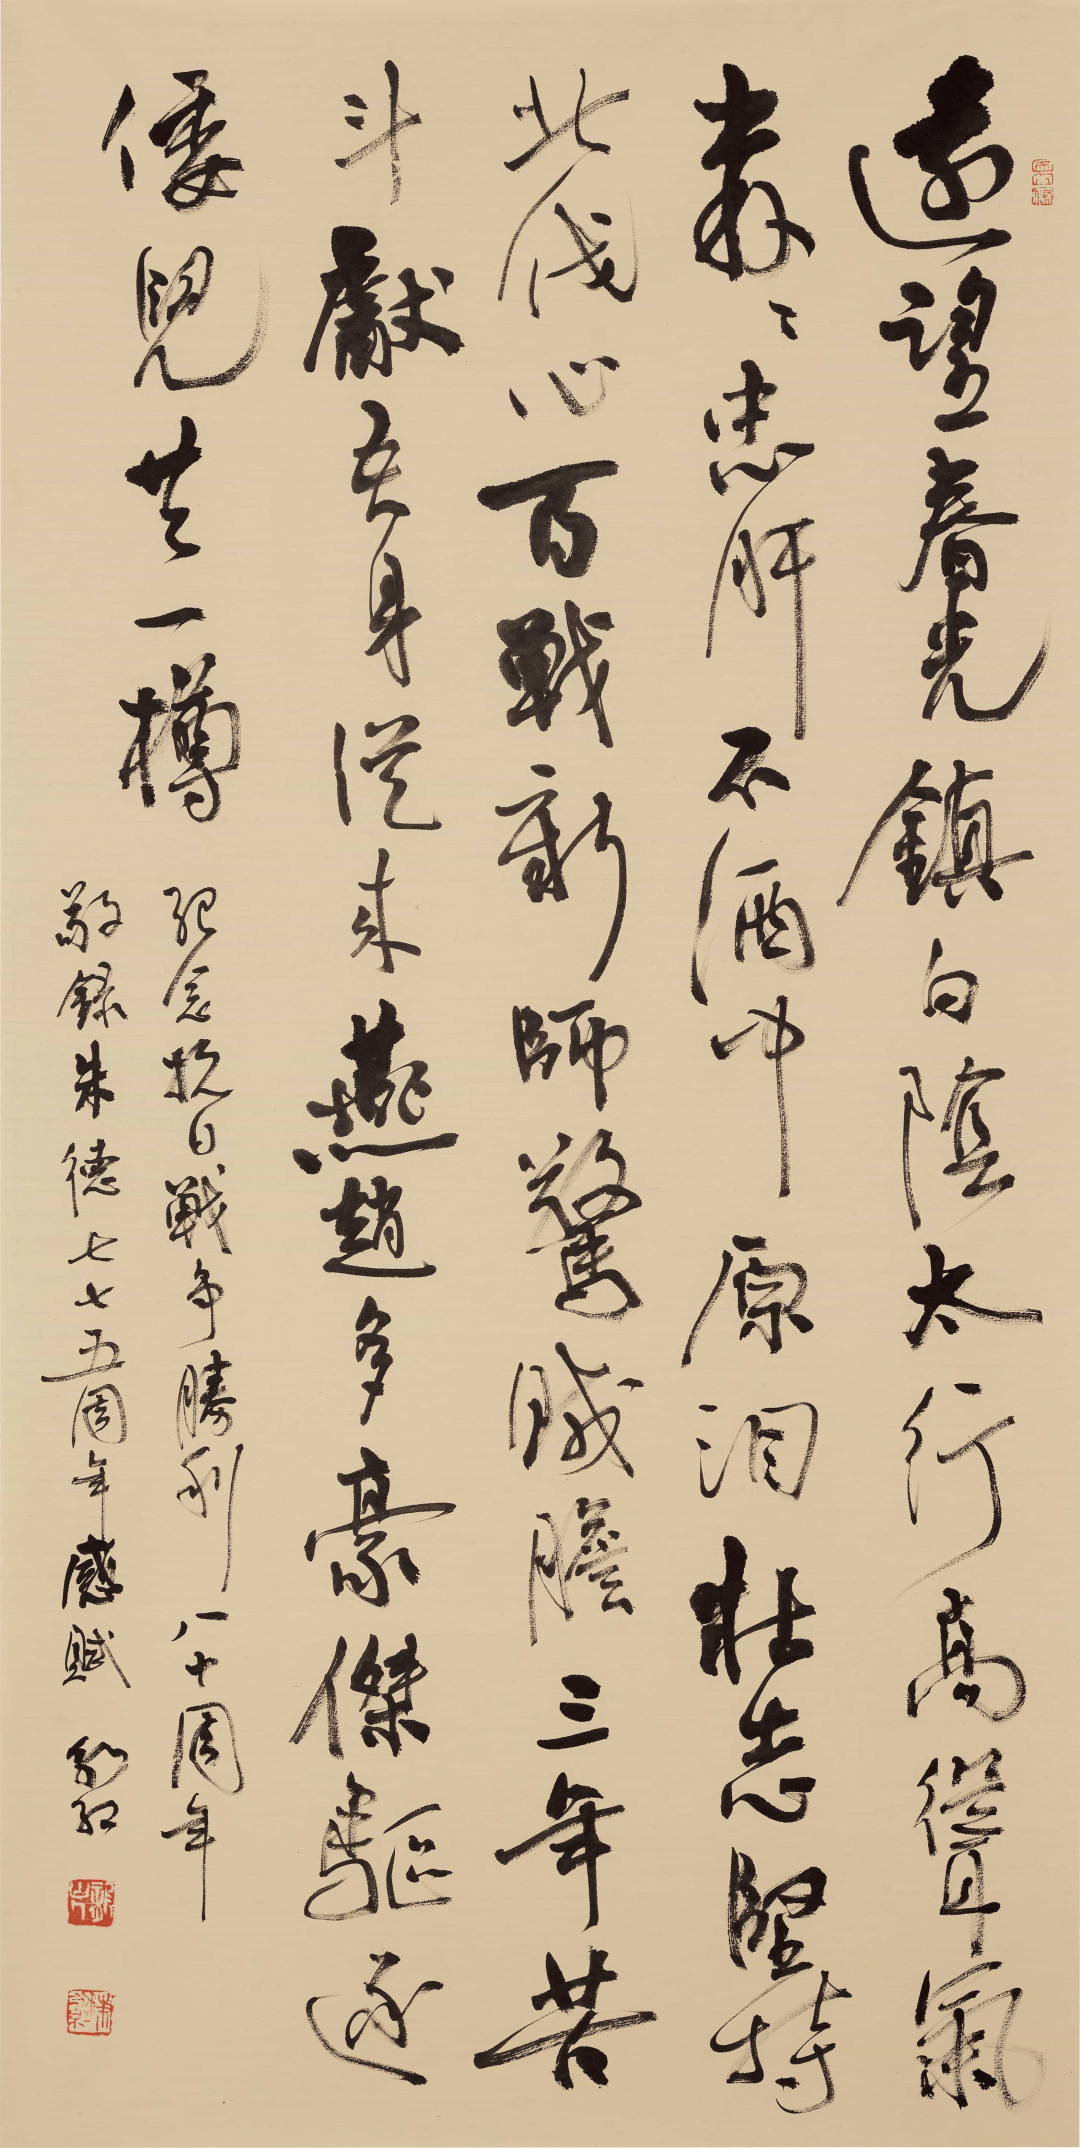 遠望春光鎮日陰太行高聳氣
森〻忠肝不洒中原泪壯志堅持
北伐心百戰新師驚賊膽三年苦
斗獻吾身從來燕趙多豪傑驅逐
倭兒共一樽
紀念抗日戰争勝利八十周年
敬錄朱德七七五周年感賦